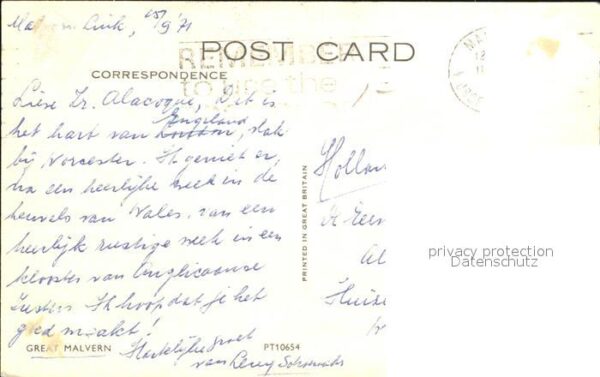 Malvern Link, 15/9 '71
POST CARD
REMEMBER
to use the
CORRESPONDENCE
Lieve Zr. Alacoque, Dit is
het hart van Engeland, vlak
bij Worcester. Ik geniet er,
na een heerlijke week in de
heuvels van Wales, van een
heerlijk rustige week in een
klooster van Anglicaanse
zusters. Ik hoop dat je het
goed maakt!
Hartelijke groet
van Leny
GREAT MALVERN
PT10654
PRINTED IN GREAT BRITAIN
MA
Holla
Al
Huize
privacy protection
Datenschutz